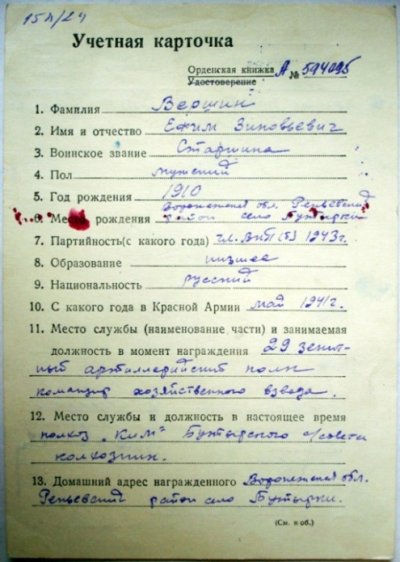 15л/24
Учетная карточка
Орденская книжка А № 594095
Удостоверение
1. Фамилия Вершин
2. Имя и отчество Ефим Зиновьевич
3. Воинское звание Старшина
4. Пол мужской
5. Год рождения 1910
Воронежская обл. Репьевский
6. Место рождения район село Бутырки
7. Партийность (с какого года) чл. ВКП(б) 1943 г.
8. Образование низшее
9. Национальность русский
10. С какого года в Красной Армии май 1941 г.
11. Место службы (наименование части) и занимаемая
должность в момент награждения 29 зенит-
ный артиллерийский полк
командир хозяйственного взвода.
12. Место службы и должность в настоящее время
колхоз „Ким" Бутырского с/совета
колхозник.
13. Домашний адрес награжденного Воронежская обл.
Репьевский район село Бутырки.
(См. н об.)